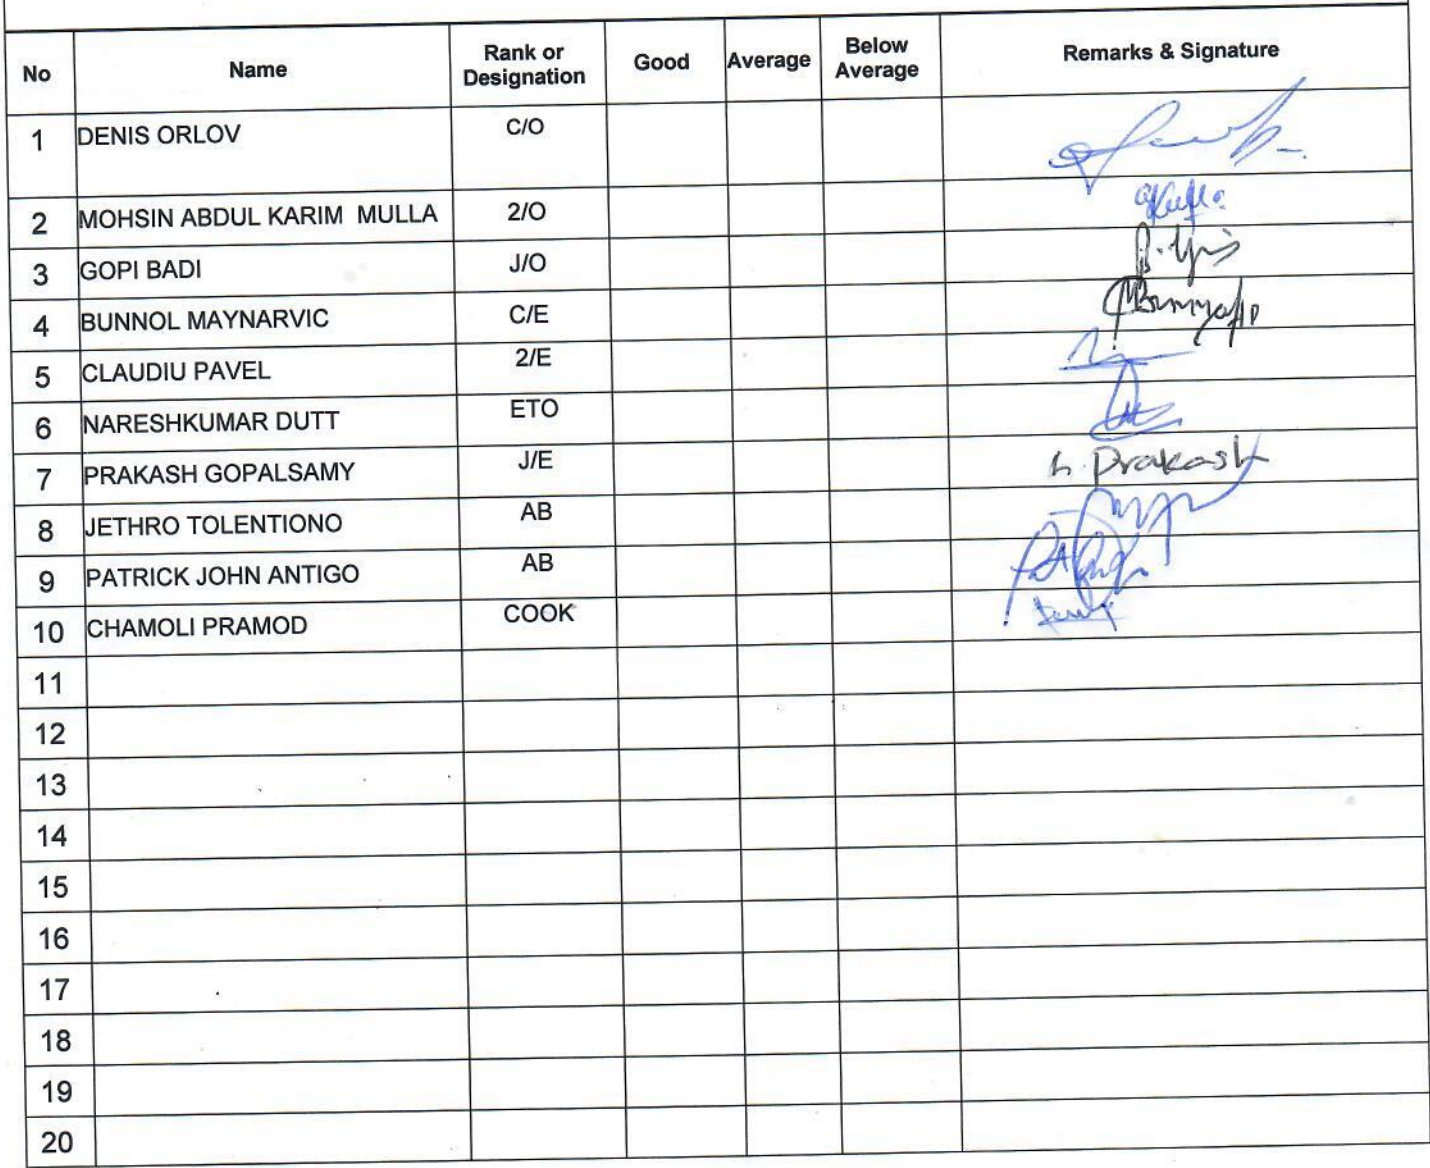 No Name Rank or Designation Good Average Below Average Remarks & Signature
1 DENIS ORLOV C/O
2 MOHSIN ABDUL KARIM MULLA 2/O
3 GOPI BADI J/O
4 BUNNOL MAYNARVIC C/E
5 CLAUDIU PAVEL 2/E
6 NARESHKUMAR DUTT ETO
7 PRAKASH GOPALSAMY J/E Prakash
8 JETHRO TOLENTIONO AB
9 PATRICK JOHN ANTIGO AB
10 CHAMOLI PRAMOD COOK
11
12
13
14
15
16
17
18
19
20